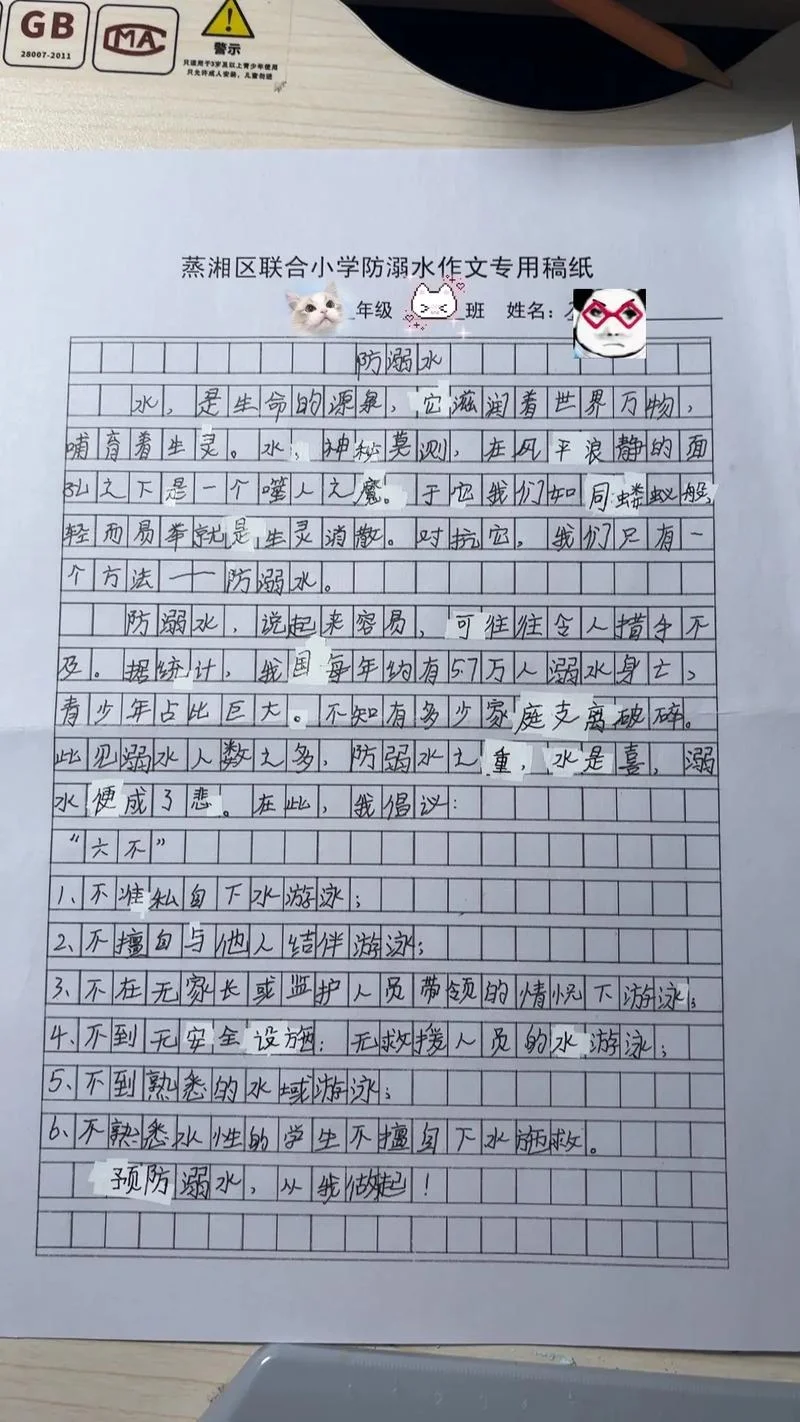 GB
28007-2011
CMA
警示
只适用于3岁及以上青少年使用
只允许成人安装，儿童勿进
蒸湘区联合小学防溺水作文专用稿纸
年级 班 姓名：
防溺水
水，是生命的源泉，它滋润着世界万物，
哺育着生灵。水，神秘莫测，在风平浪静的面
孔之下是一个噬人之魔。于它我们如同蝼蚁般，
轻而易举就是生灵消散。对抗它，我们只有一
个方法——防溺水。
防溺水，说起来容易，可往往令人措手不
及。据统计，我国每年约有5.7万人溺水身亡，
青少年占比巨大。不知有多少家庭支离破碎。
此见溺水人数之多，防溺水之重，水是喜，溺
水便成了悲。在此，我倡议：
“六不”
1、不准私自下水游泳；
2、不擅自与他人结伴游泳；
3、不在无家长或监护人员带领的情况下游泳；
4、不到无安全设施；无救援人员的水游泳；
5、不到熟悉的水域游泳；
6、不熟悉水性的学生不擅自下水施救。
预防溺水，从我做起！